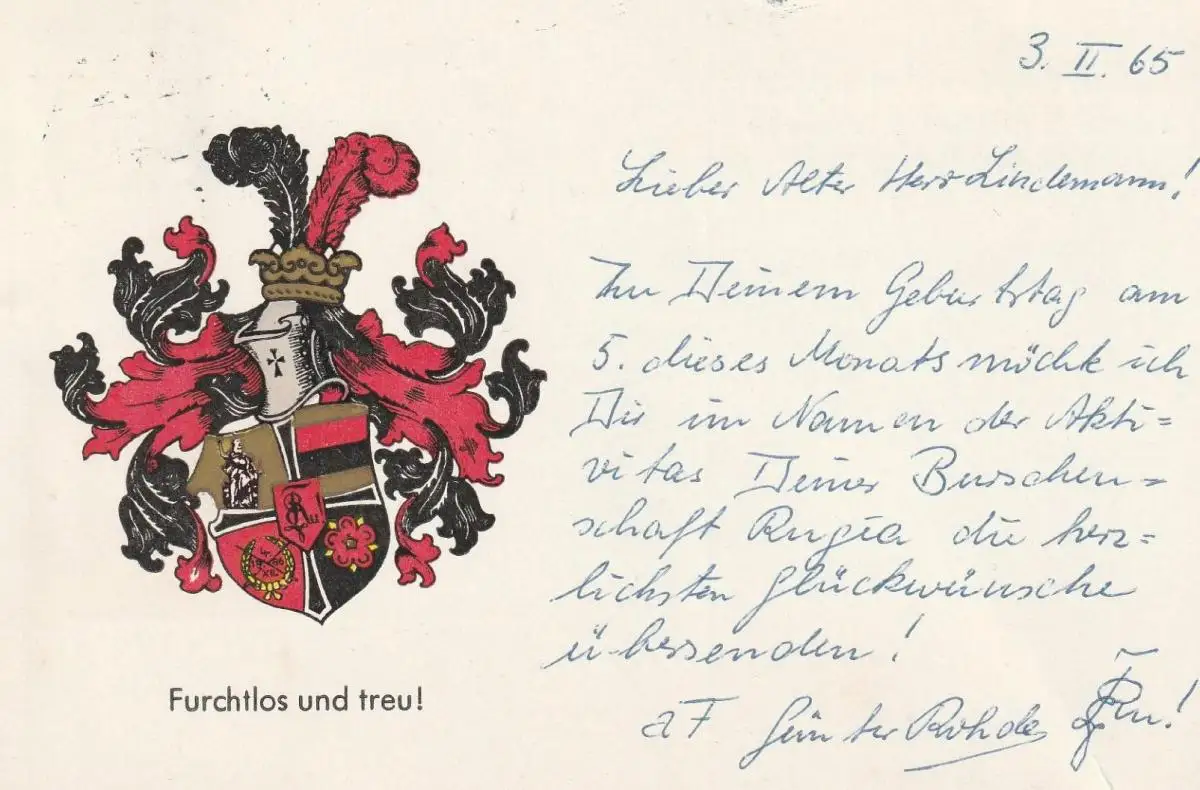 3. II. 65
Lieber Alter Herr Lindemann!
Zu Deinem Geburtstag am
5. dieses Monats möchte ich
Dir im Namen der Akti=
vitas Deiner Burschen=
schaft Rugia die herz=
lichsten Glückwünsche
übersenden!
aF Günter Rohde
Furchtlos und treu!